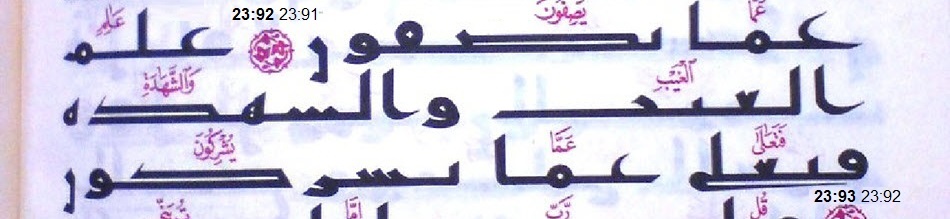 23:92 23:91
عَمَّا يَصِفُونَ عَٰلِمِ
عما يصفون علم
ٱلْغَيْبِ وَٱلشَّهَٰدَةِ
الغيب والشهده
فَتَعَٰلَىٰ عَمَّا يُشْرِكُونَ
فتعلى عما يشركون
23:93 23:92
قُل رَّبِّ إِمَّا